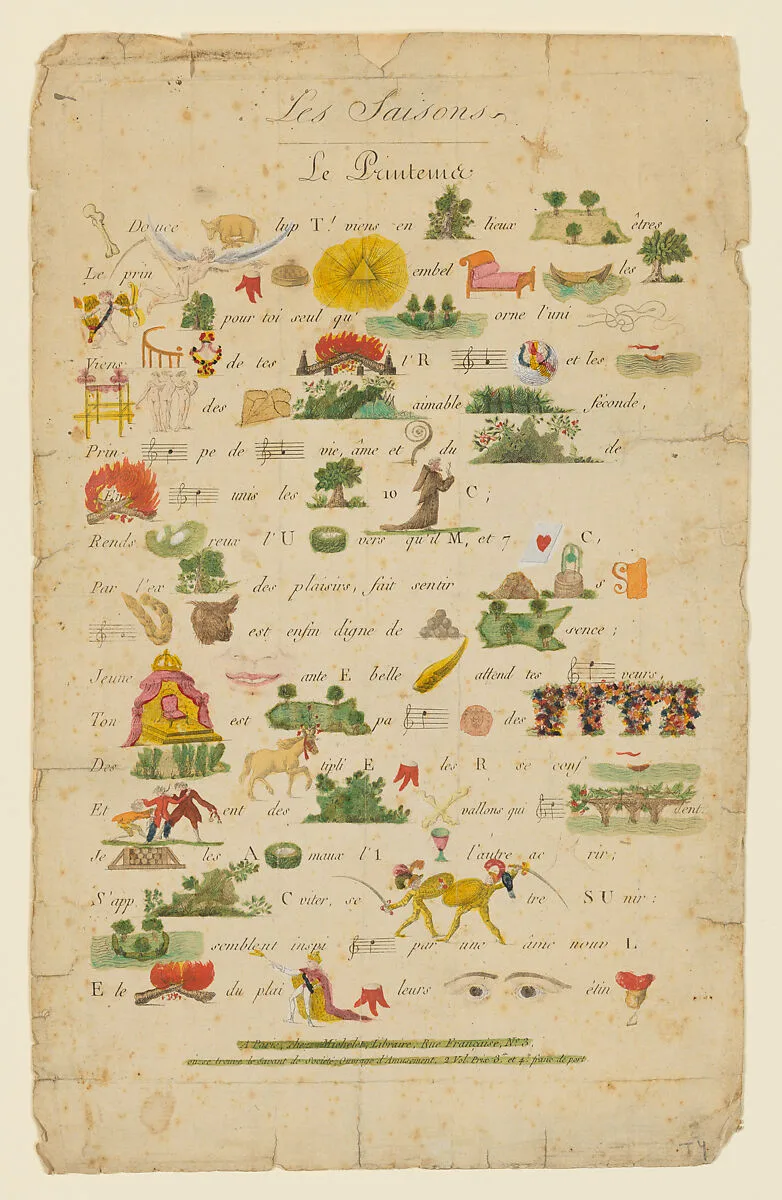 Les Saisons
Le Printems
Douce lup T! viens en lieux êtres
Le prin embel les
pour toi seul qu' orne l'uni
Viens de tes l'R et les
des aimable féconde,
Prin pe de vie, âme et du de
Et unis les 10 C;
Rends reux l'U vers qu'il M, et 7 C,
Par l'ex des plaisirs, fait sentir s S
est enfin digne de sence;
Jeune ante E belle attend tes veurs,
Ton est pa des
Des tipli E les R se conf
Et ent des vallons qui dent.
Je les A maux l'1 l'autre ac rir;
S'app C viter, se tre S U nir:
semblent inspi par une âme nouv L
E le du plai leurs étin
A Paris, chez Michelet, Libraire, Rue Française, No. 3,
où se trouve le Savant de Société, Ouvrage d'Amusement, 2 Vol. Prix 3f. et 4f. franc de port
T4